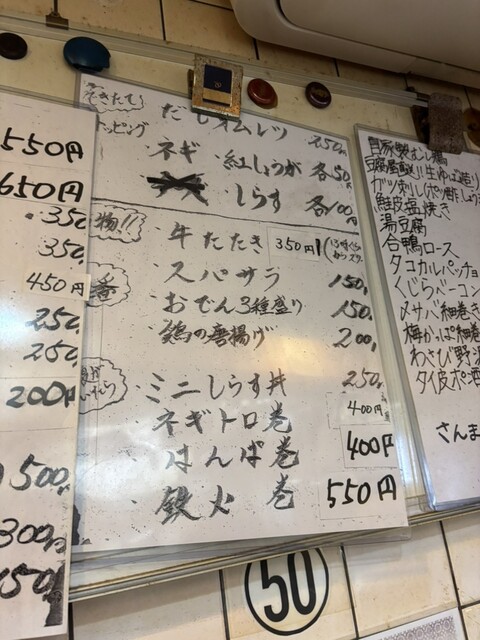 550円
650円
350
350
450円
250
250
200円
500
300円
150
できたて
だしオムレツ 250
トッピング
・ネギ ・紅しょうが 各50
・しらす 各100円
物!!
・牛たたき 350円
・スパサラ 150
・おでん3種盛り 150
・鶏の唐揚げ 200
・ミニしらす丼 250
・ネギトロ巻 400円
・はんぱ巻 400円
・鉄火巻 550円
自家製むし鶏
ガツ刺し(ポン酢しょう
鮭皮塩焼き
湯豆腐
合鴨ロース
タコカルパッチョ
くじらベーコン
〆サバ細巻き
梅かっぱ細巻
わさび野沢
タイ皮ポン酢
さんま
50